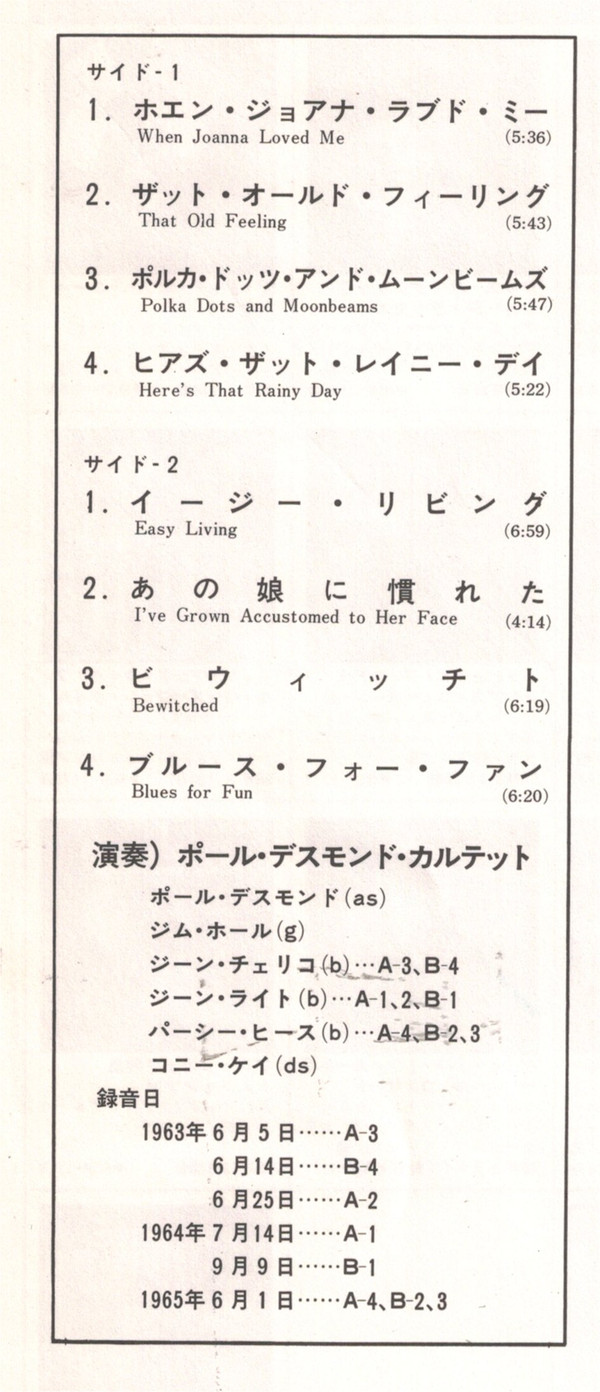 サイド-1
1. ホエン・ジョアナ・ラブド・ミー
When Joanna Loved Me (5:36)
2. ザット・オールド・フィーリング
That Old Feeling (5:43)
3. ポルカ・ドッツ・アンド・ムーンビームズ
Polka Dots and Moonbeams (5:47)
4. ヒアズ・ザット・レイニー・デイ
Here's That Rainy Day (5:22)
サイド-2
1. イージー・リビング
Easy Living (6:59)
2. あの娘に慣れた
I've Grown Accustomed to Her Face (4:14)
3. ビウィッチト
Bewitched (6:19)
4. ブルース・フォー・ファン
Blues for Fun (6:20)
演奏) ポール・デスモンド・カルテット
ポール・デスモンド(as)
ジム・ホール(g)
ジーン・チェリコ(b)…A-3、B-4
ジーン・ライト(b)…A-1、2、B-1
パーシー・ヒース(b)…A-4、B-2、3
コニー・ケイ(ds)
録音日
1963年6月5日……A-3
6月14日……B-4
6月25日……A-2
1964年7月14日……A-1
9月9日……B-1
1965年6月1日……A-4、B-2、3